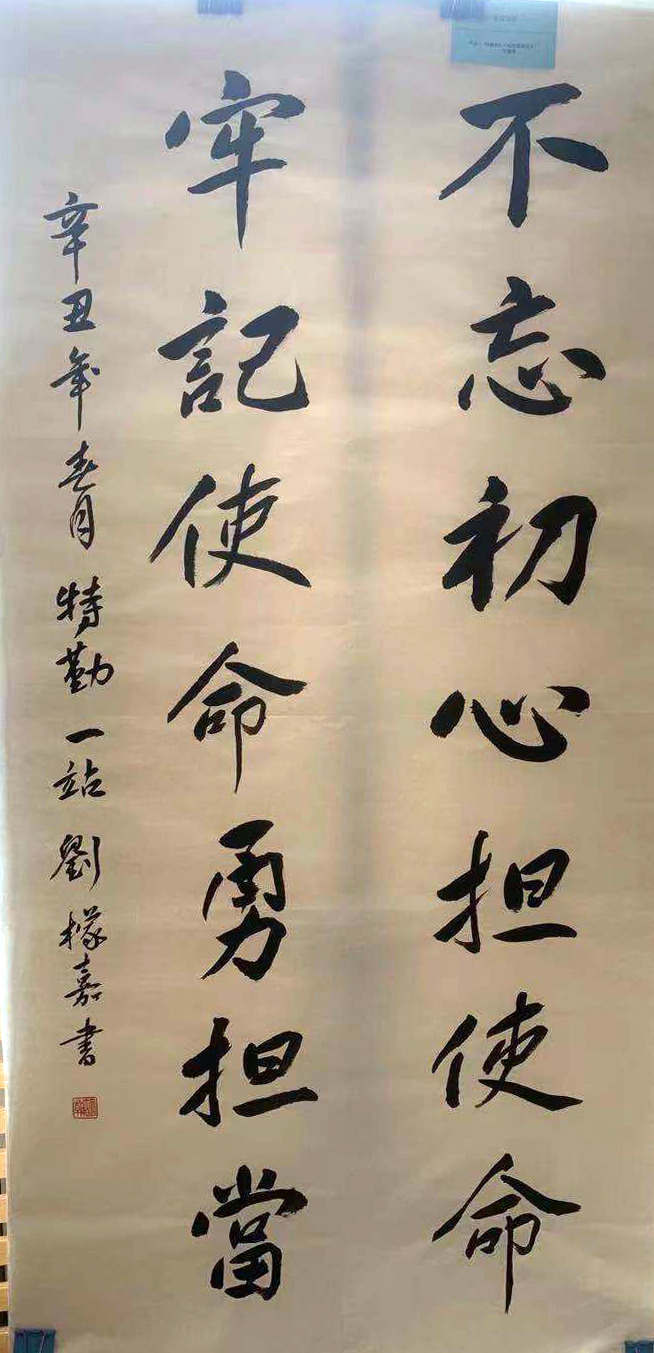 不忘初心担使命
牢記使命勇担當
辛丑年春月 特勤一站 劉檬嘉書